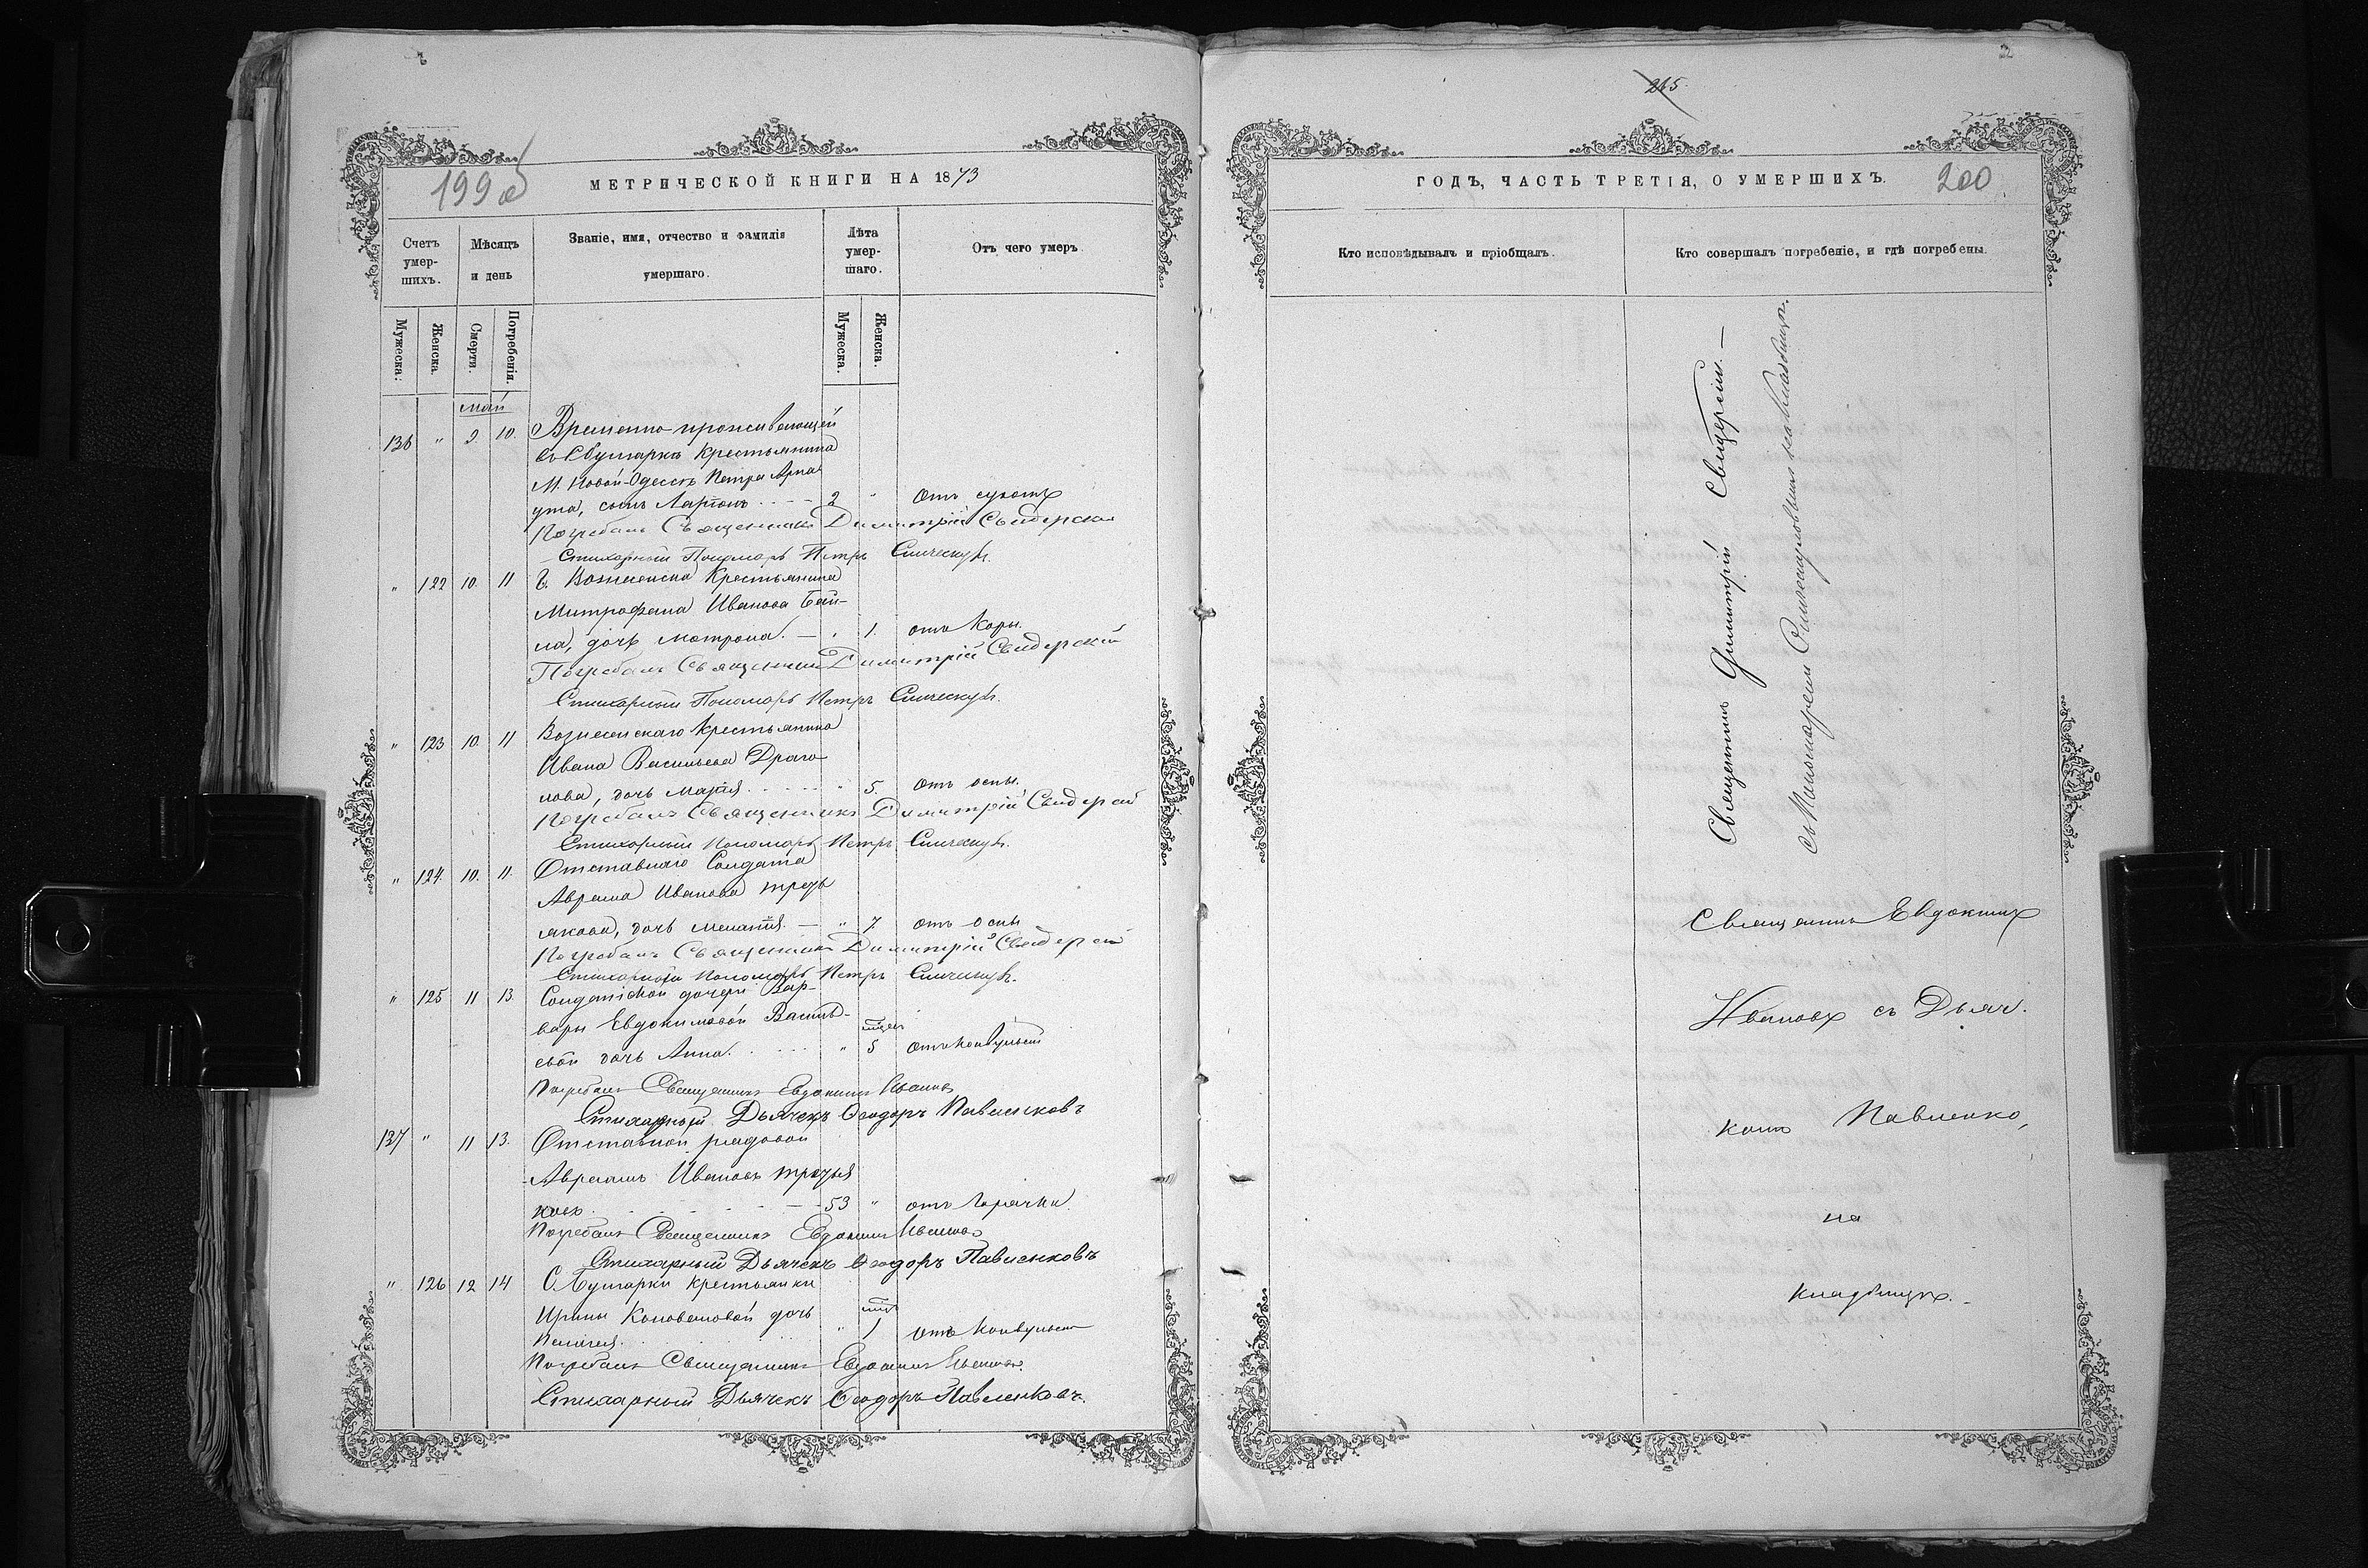 199 об
МЕТРИЧЕСКОЙ КНИГИ НА 1873
Счетъ умер- шихъ.
Мѣсяцъ и день
Званіе, имя, отчество и фамилія умершаго.
Лѣта умер- шаго.
Отъ чего умеръ
Мужеска:
Женска.
Смерти.
Погребенія.
Мужеска.
Женска.
май
136 " 9. 10. Временно проживающей
въ С Булгаркѣ Крестьянина
М. Новой-Одессы Петра Арна
ута, сынъ Ларіонъ 2 " Отъ сухоты
Погребалъ Священникъ Димитрій Свидерскій
Стихарный Пономарь Петръ
" 122 10. 11 Г. Вознесенска Крестьянина
Митрофана Иванова Бай-
ла, дочь Матрона. — " 1. отъ Коры.
Погребалъ Священникъ Димитрій Свидерскій
Стихарный Пономарь Петръ
" 123 10. 11 Вознесенскаго Крестьянина
Ивана Васильева Драго
лова, дочь Марія " 5. отъ оспы.
Погребалъ Священникъ Димитрій Свидерскій
Стихарный Пономарь Петръ
" 124. 10. 11. Отставнаго Солдата
Аврама Иванова Трезв
якова, дочь Меланія. — " 7 отъ оспы
Погребалъ Священникъ Димитрій Свидерскій
Стихарный Пономарь Петръ
" 125 11 13. Солдатской дочери Вар-
вары Евдокимовой Василь-
евой дочь Анна. " 5 отъ конвульсій
Погребалъ Священникъ Евдокимъ Ивановъ
Стихарный Дьячекъ Ѳеодоръ Павленковъ
137 " 11 13. Отставной рядовой
Авраамъ Ивановъ
ковъ — 53 " отъ горячки.
Погребалъ Священникъ Евдокимъ Ивановъ
Стихарный Дьячекъ Ѳеодоръ Павленковъ
" 126 12 14 С Булгарки крестьянки
Ирины Коноваловой дочь
Пелагея. " 1 отъ конвульсій
Погребалъ Священникъ Евдокимъ Ивановъ.
Стихарный Дьячекъ Ѳеодоръ Павленковъ.
215.
ГОДЪ, ЧАСТЬ ТРЕТІЯ, О УМЕРШИХЪ.
200
Кто исповѣдывалъ и пріобщалъ.
Кто совершалъ погребеніе, и гдѣ погребены.
Священникъ Димитрій Свидерскій. —
съ Пономаремъ на кладбищѣ.
Священникъ Евдокимъ
Ивановъ съ Дьяч.
комъ Павленко,
на
кладбищѣ.